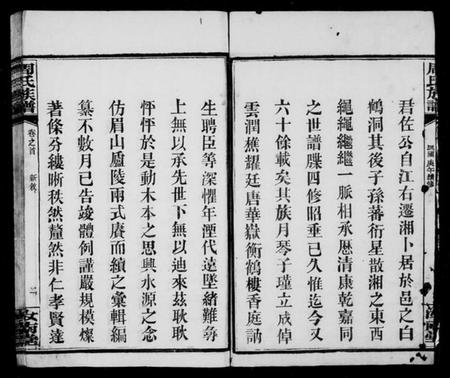 周氏族譜
君佐公自江右遷湘卜居於邑之白
鶴洞其後子孫蕃衍星散湘之東西
繩繩繼繼一脈相承歷清康乾嘉同
之世譜牒四修昭垂已久惟迄今又
六十餘載矣其族月琴子瑾立成倬
雲潤樵耀廷唐華嶽衡鶴樓香庭訥
生聘臣等深懼年湮代遠墜緒難尋
上無以承先世下無以迪來茲耿耿
怦怦於是動木本之思興水源之念
仿眉山廬陵兩式賡而續之彙輯編
纂不數月已告竣體例謹嚴規模燦
著條分縷晰秩然釐然非仁孝賢達
周氏族譜
卷之首
新敘
二
汝南堂